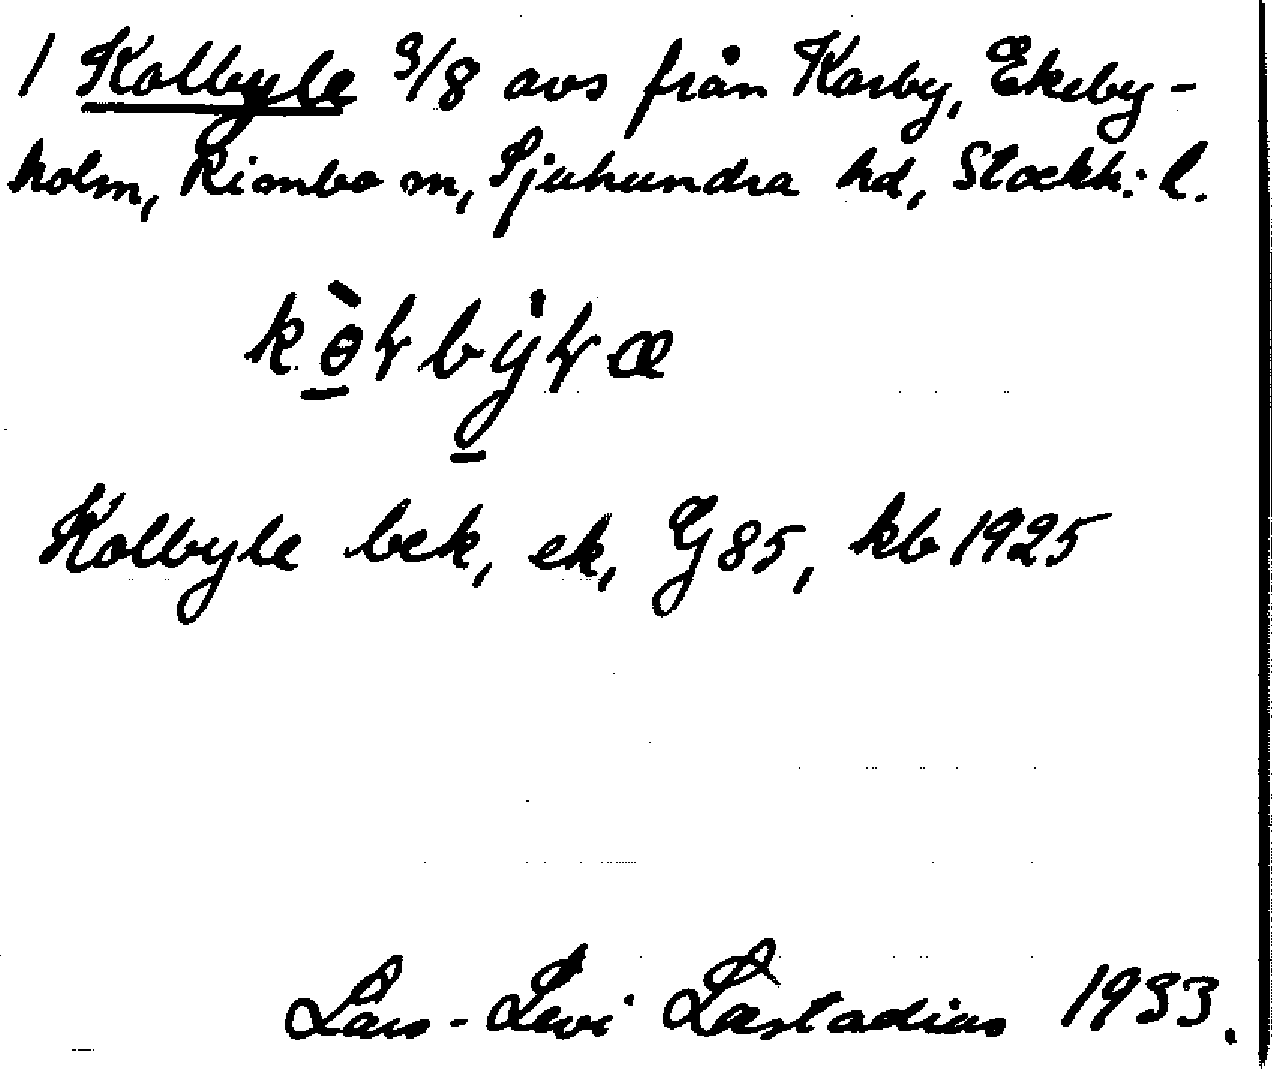 1 Kolbyle 3/8 avs från Karby, Ekeby-
holm, Rimbo sn, Sjuhundra hd, Stockh: l.
Kolbyle bek, ek, G 85, kb 1925
Lars-Levi Læstadius 1933.